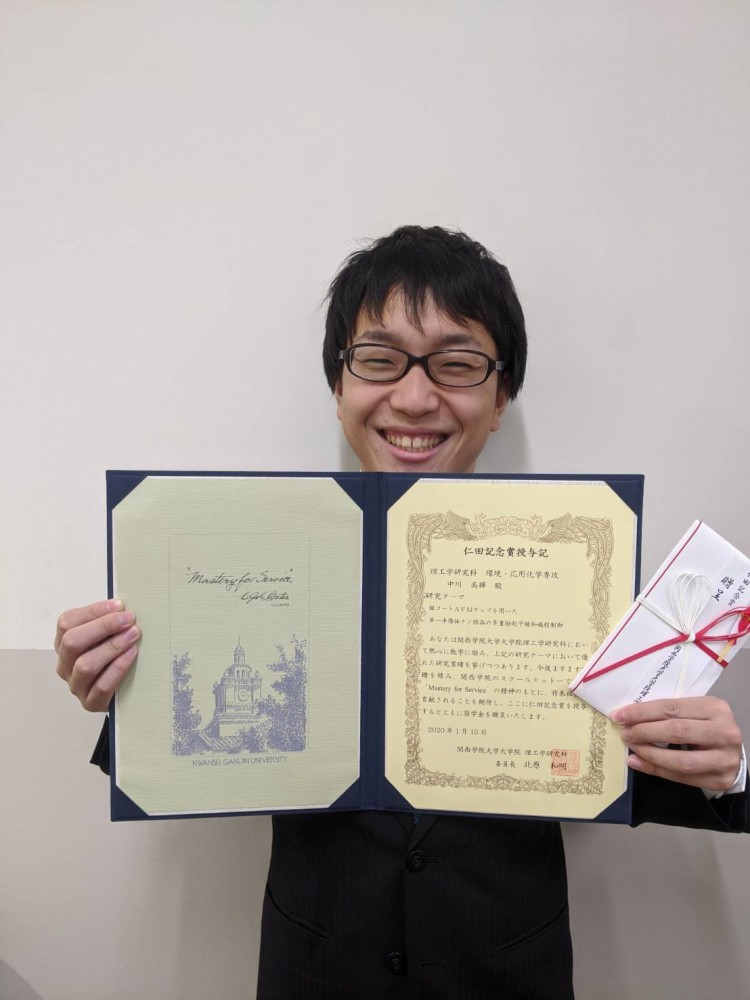 "Mastery for Service"
KWANSEI GAKUIN UNIVERSITY
仁田記念賞授与記
理工学研究科 環境・応用化学専攻
中川 高輝 殿
研究テーマ
銀コートAFMチップを用いた
単一半導体ナノ結晶の多重励起子緩和過程制御
あなたは関西学院大学大学院理工学研究科におい
て熱心に勉学に励み、上記の研究テーマにおいて優
れた研究業績を挙げつつあります。今後ますます
鑽を積み、関西学院のスクールモットーで
"Mastery for Service" の精神のもとに、将来
貢献されることを期待し、ここに仁田記念賞を授与
するとともに奨学金を贈呈いたします。
2020年1月15日
関西学院大学大学院 理工学研究科
委員長 北原 和明
田記念賞
贈呈